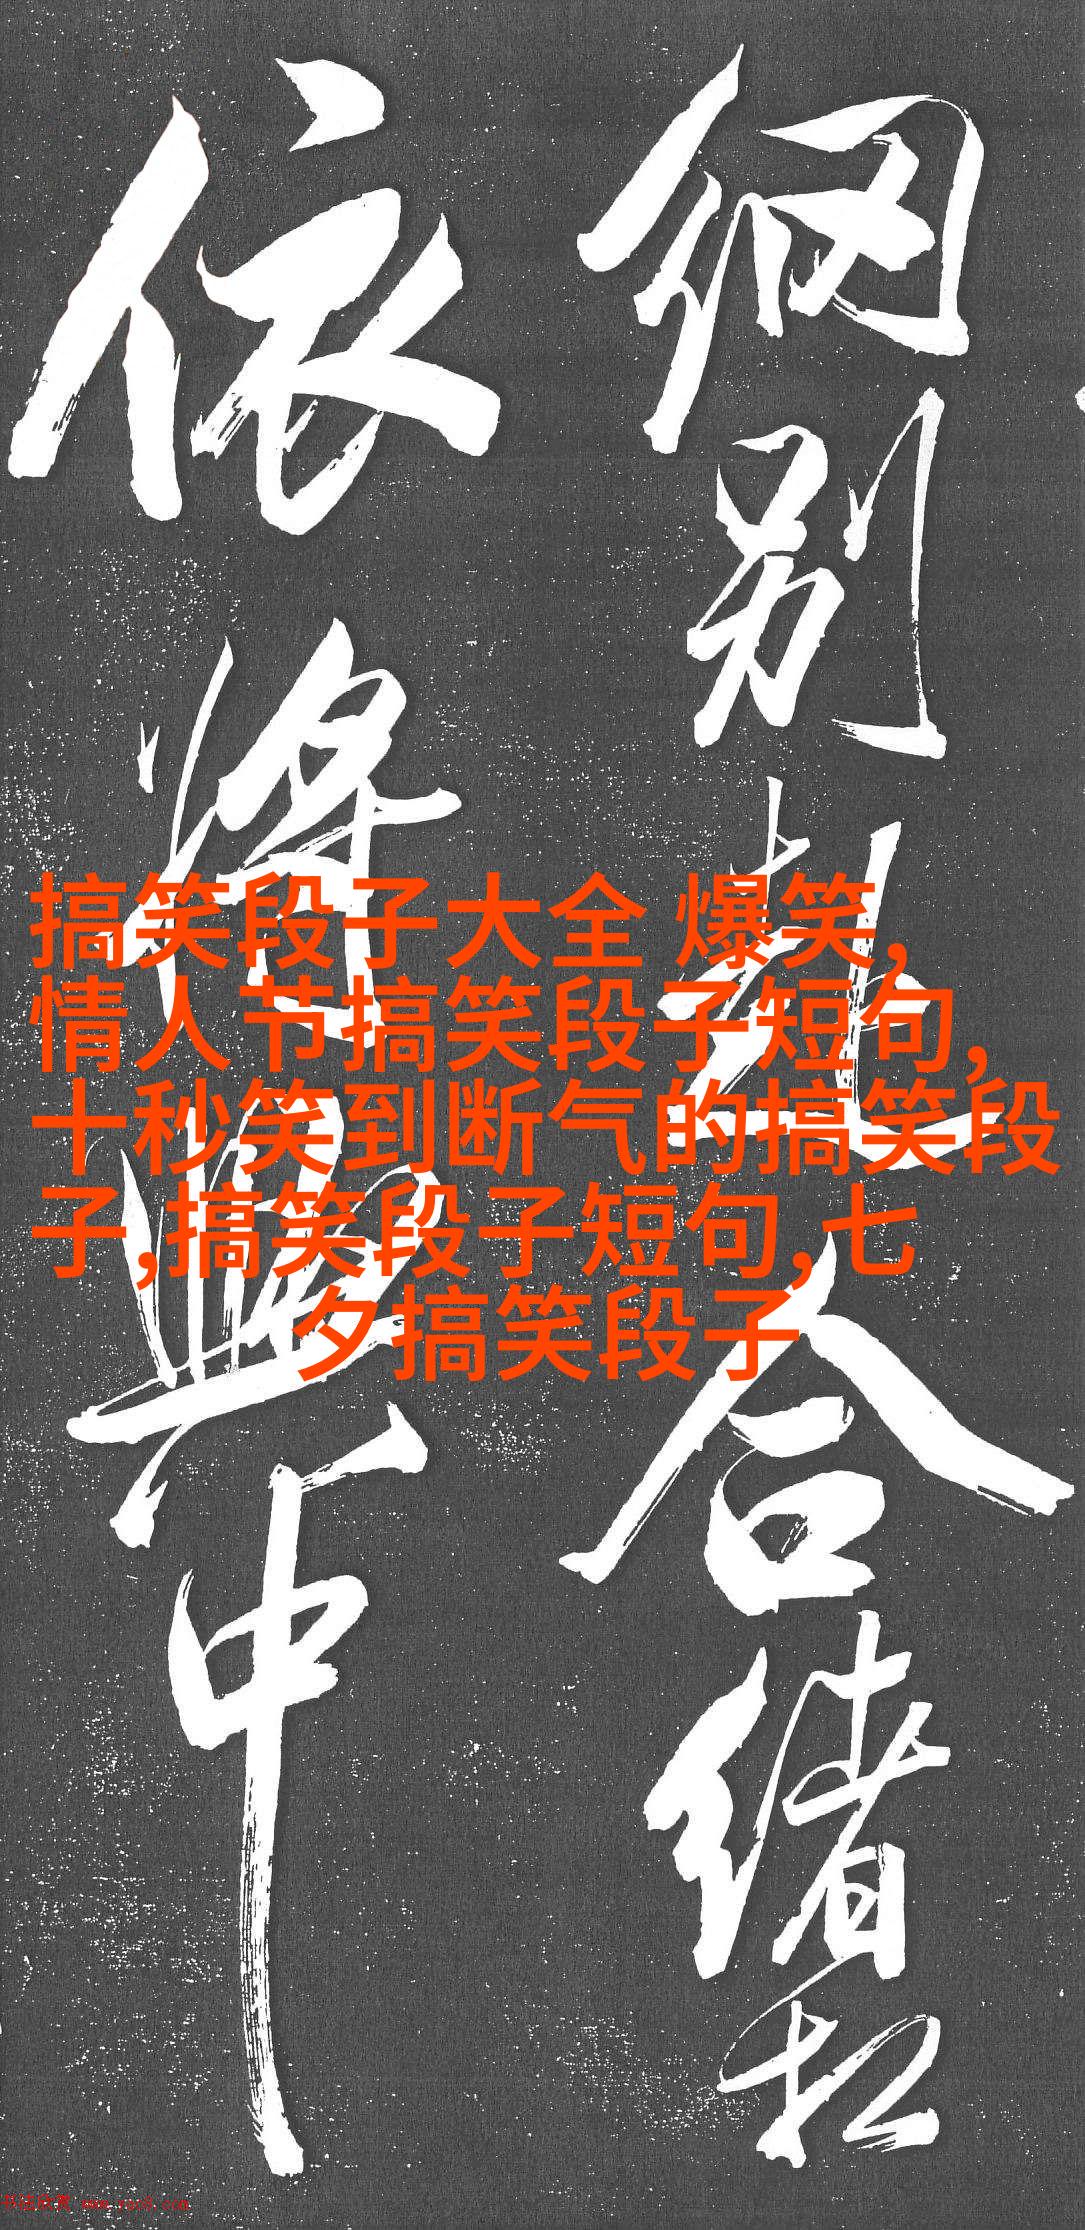 别合緒
依将興中
搞笑段子大全 爆笑,
情人节搞笑段子短句,
十秒笑到断气的搞笑段
子,搞笑段子短句,七
夕搞笑段子
书法欣赏 www.yac8.com